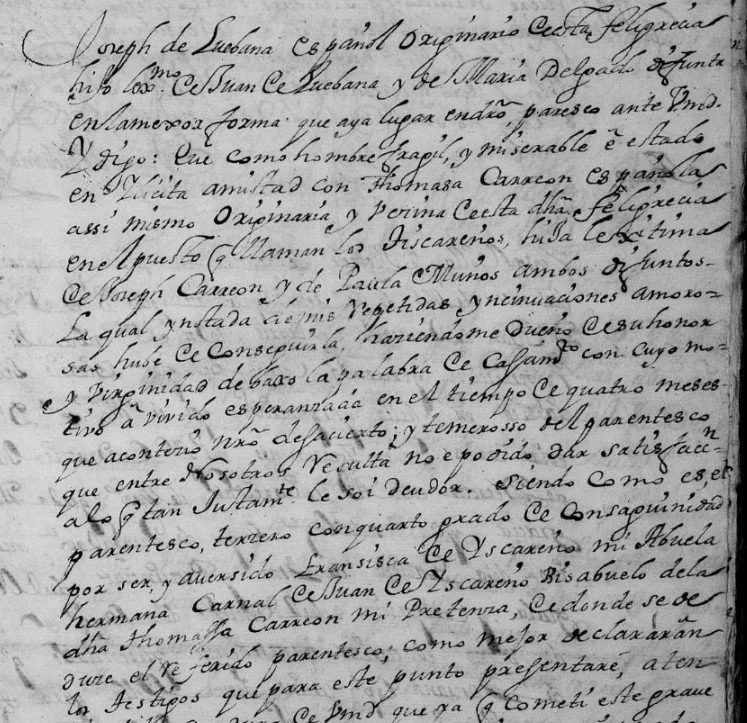 Joseph de Luebana español originario Cesta feligrecia
hijo lexmo. Ce Juan Ce Luebana y de Maria Delgado difunta
en la mexor forma que aya lugar en dro, paresco ante Vmd.
Y digo: Que como hombre fragil, y miserable e estado
en Ylicita amistad con Thomasa Carreon española
assi mismo originaria y vezina Cesta dha. feligrecia
en el puesto q llaman los Yscareños, hija lexitima
Ce Joseph Carreon y de Paula Muños ambos difuntos-
La qual ynstada de mis repetidas yncinuaciones amoro=
sas hube Ce conseguirla, haziendome Dueño Ce su honor
y virginidad debaxo la palabra Ce Cassamto. con cuyo mo=
tivo a vivido esperanzada en el tiempo Ce quatro meses-
que acontezio nro desacierto; y temerosso del parentesco
que entre Nosotros resulta no e podido dar satisfaccn.
a lo q tan Justamte. le soi deudor. siendo como es, el
parentesco, terzero con quarto grado Ce Consaguinidad
por ser, y aver sido Fransisca Ce Yscareño mi Abuela
hermana Carnal Ce Juan Ce Yscareño Bisabuelo de la
dha Thomassa Carreon mi Pretenza, Ce donde se de
duze el referido parentesco; como mejor declararàn
los testigos que para este punto presentaré, aten
Vmd. que ya q cometi este grave